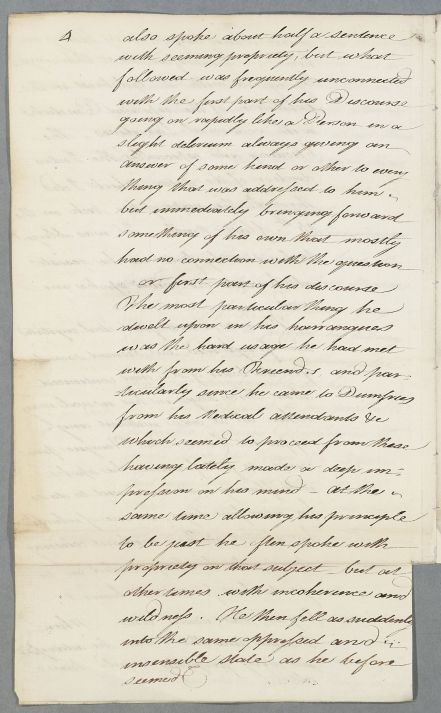 4
also spoke about half a sentence
with seeming propriety, but what
followed was frequently unconnected
with the first part of his Discourse
going on rapidly like a Person in a
slight delirium always giving an
answer of some kind or other to every
thing that was addressed to him
but immediately bringing forward
something of his own that mostly
had no connection with the question
or first part of his discourse
The most particular thing he
dwelt upon in his harrangues
was the hard usage he had met
with from his Friends and par-
ticularly since he came to Dumfries
from his Medical attendants &c
which seemed to proceed from these
having lately made a deep im-
pression on his mind – at the
same time allowing his principle
to be just he often spoke with
propriety on that subject – but at
other times with incoherence and
wildness. He then fell as suddenly
into the same oppressed and
insensible state as he before
seemed